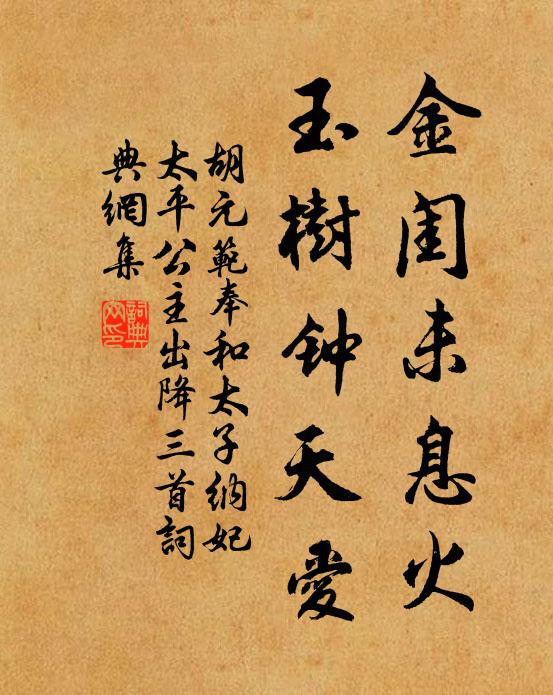 金闺未息火
玉樹钟天愛
胡元範奉和太子納妃
太平公主出降三首詞
典網集
詞典
网印